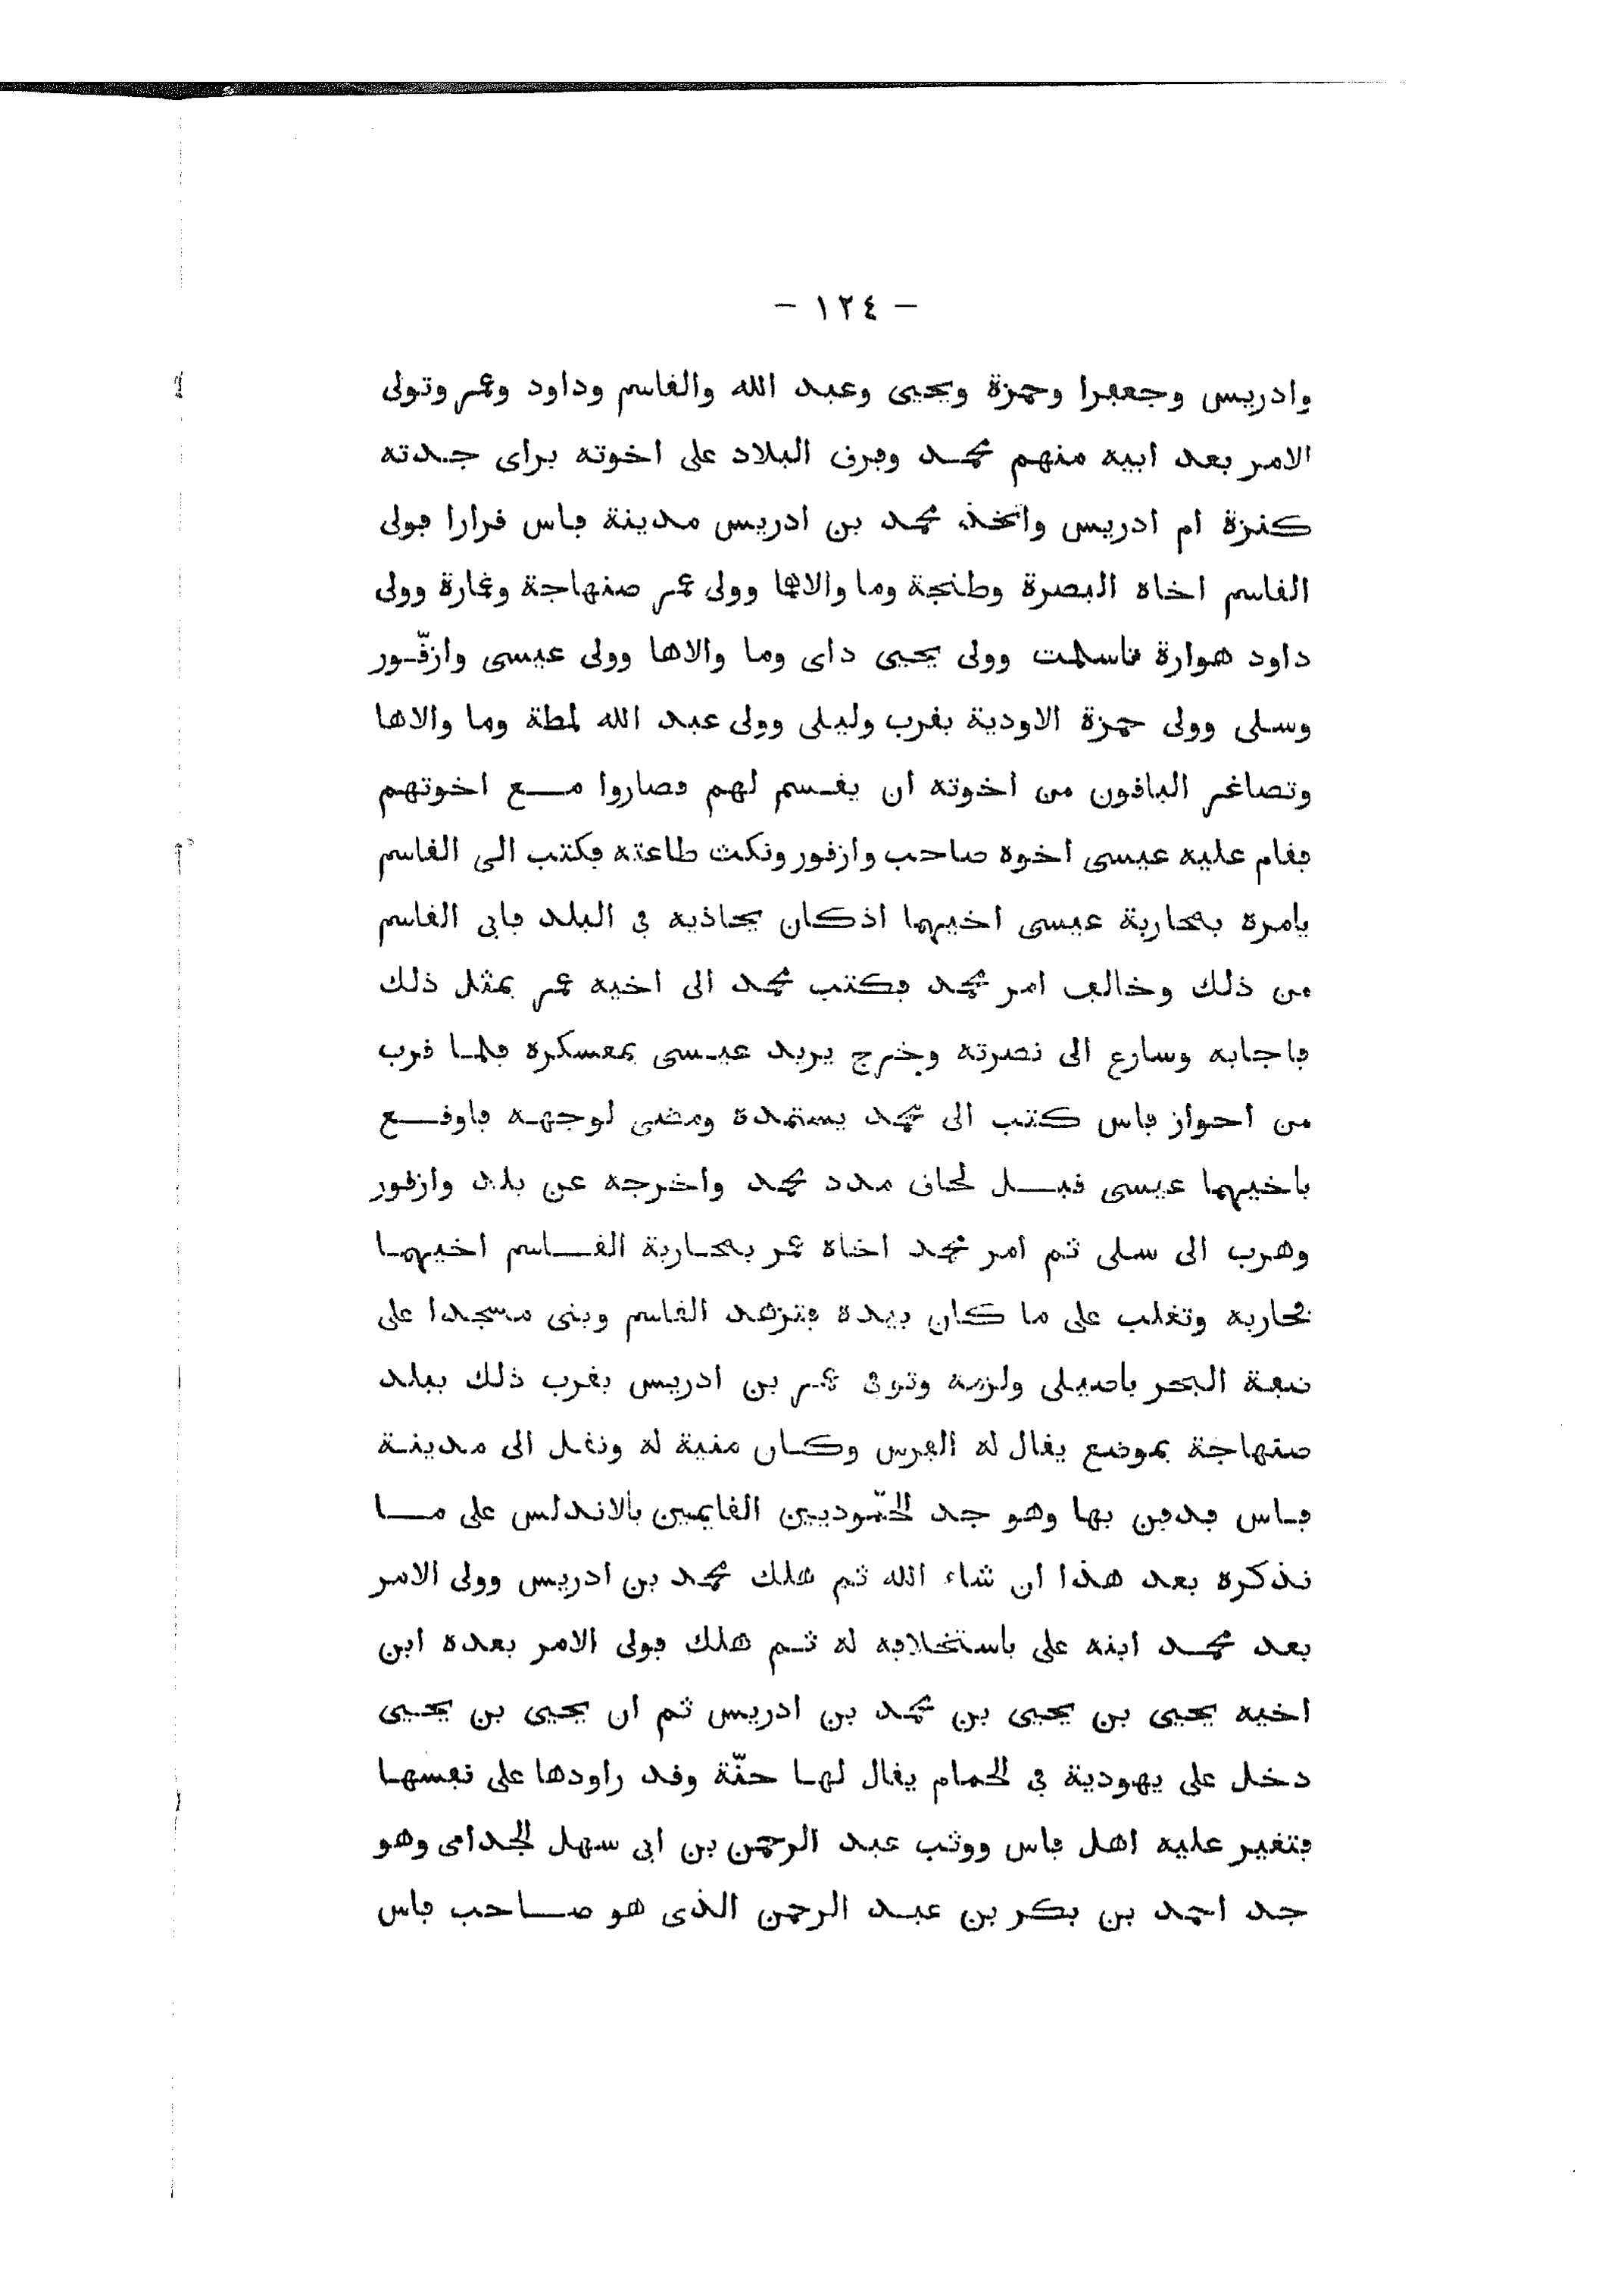 - ١٢٤ -
وادريس وجعڢرا وحمزة ويحيى وعبد الله والڧاسم وداود وعمر وتولى
الامر بعد ابيه منهم محمد وڢرڧ البلاد على اخوته براى جدته
كنزة ام ادريس واتخذ محمد بن ادريس مدينة ڢاس ڧرارا ڢولى
الڧاسم اخاه البصرة وطنجة وما والاهما وولى عمر صنهاجة وغمارة وولى
داود هوارة تاسلمت وولى يحيى داى وما والاها وولى عيسى وازڧّور
وسلى وولى حمزة الاودية بڧرب وليلى وولى عبد الله لمطة وما والاها
وتصاغر الباڧون من اخوته ان يڧسم لهم ڢصاروا مع اخوتهم
ڢڧام عليه عيسى اخوه صاحب وازڧور ونكث طاعته ڢكتب الى الڧاسم
يامره بمحاربة عيسى اخيهما اذ كان يحاذيه ڢى البلد ڢابى الڧاسم
من ذلك وخالڢ امر محمد ڢكتب محمد الى اخيه عمر بمثل ذلك
ڢاجابه وسارع الى نصرته وخرج يريد عيسى بمعسكره ڢلما ڧرب
من احواز ڢاس كتب الى محمد يستمده ومضى لوجهه ڢاوڧع
باخيهما عيسى ڧبل لحاڧ مدد محمد واخرجه عن بلد وازڧور
وهرب الى سلى ثم امر محمد اخاه عمر بمحاربة الڧاسم اخيهما
ڢحاربه وتغلب على ما كان بيده ڢتزهد الڧاسم وبنى مسجدا على
ضڢة البحر باصيلى ولزمه وتوڢى عمر بن ادريس بڧرب ذلك ببلد
صنهاجة بموضع يڧال له الڢرس وكان منية له ونڧل الى مدينة
ڢاس ڢدڢن بها وهو جد الحمّوديين الڧايمين بالاندلس على ما
نذكره بعد هذا ان شاء الله ثم هلك محمد بن ادريس وولى الامر
بعد محمد ابنه على باستخلاڢه له ثم هلك ڢولى الامر بعده ابن
اخيه يحيى بن يحيى بن محمد بن ادريس ثم ان يحيى بن يحيى
دخل على يهودية ڢى الحمام يڧال لها حنّة وڧد راودها على نڢسها
ڢتغير عليه اهل ڢاس ووثب عبد الرحمن بن ابى سهل الجدامى وهو
جد احمد بن بكر بن عبد الرحمن الذى هو صاحب ڢاس